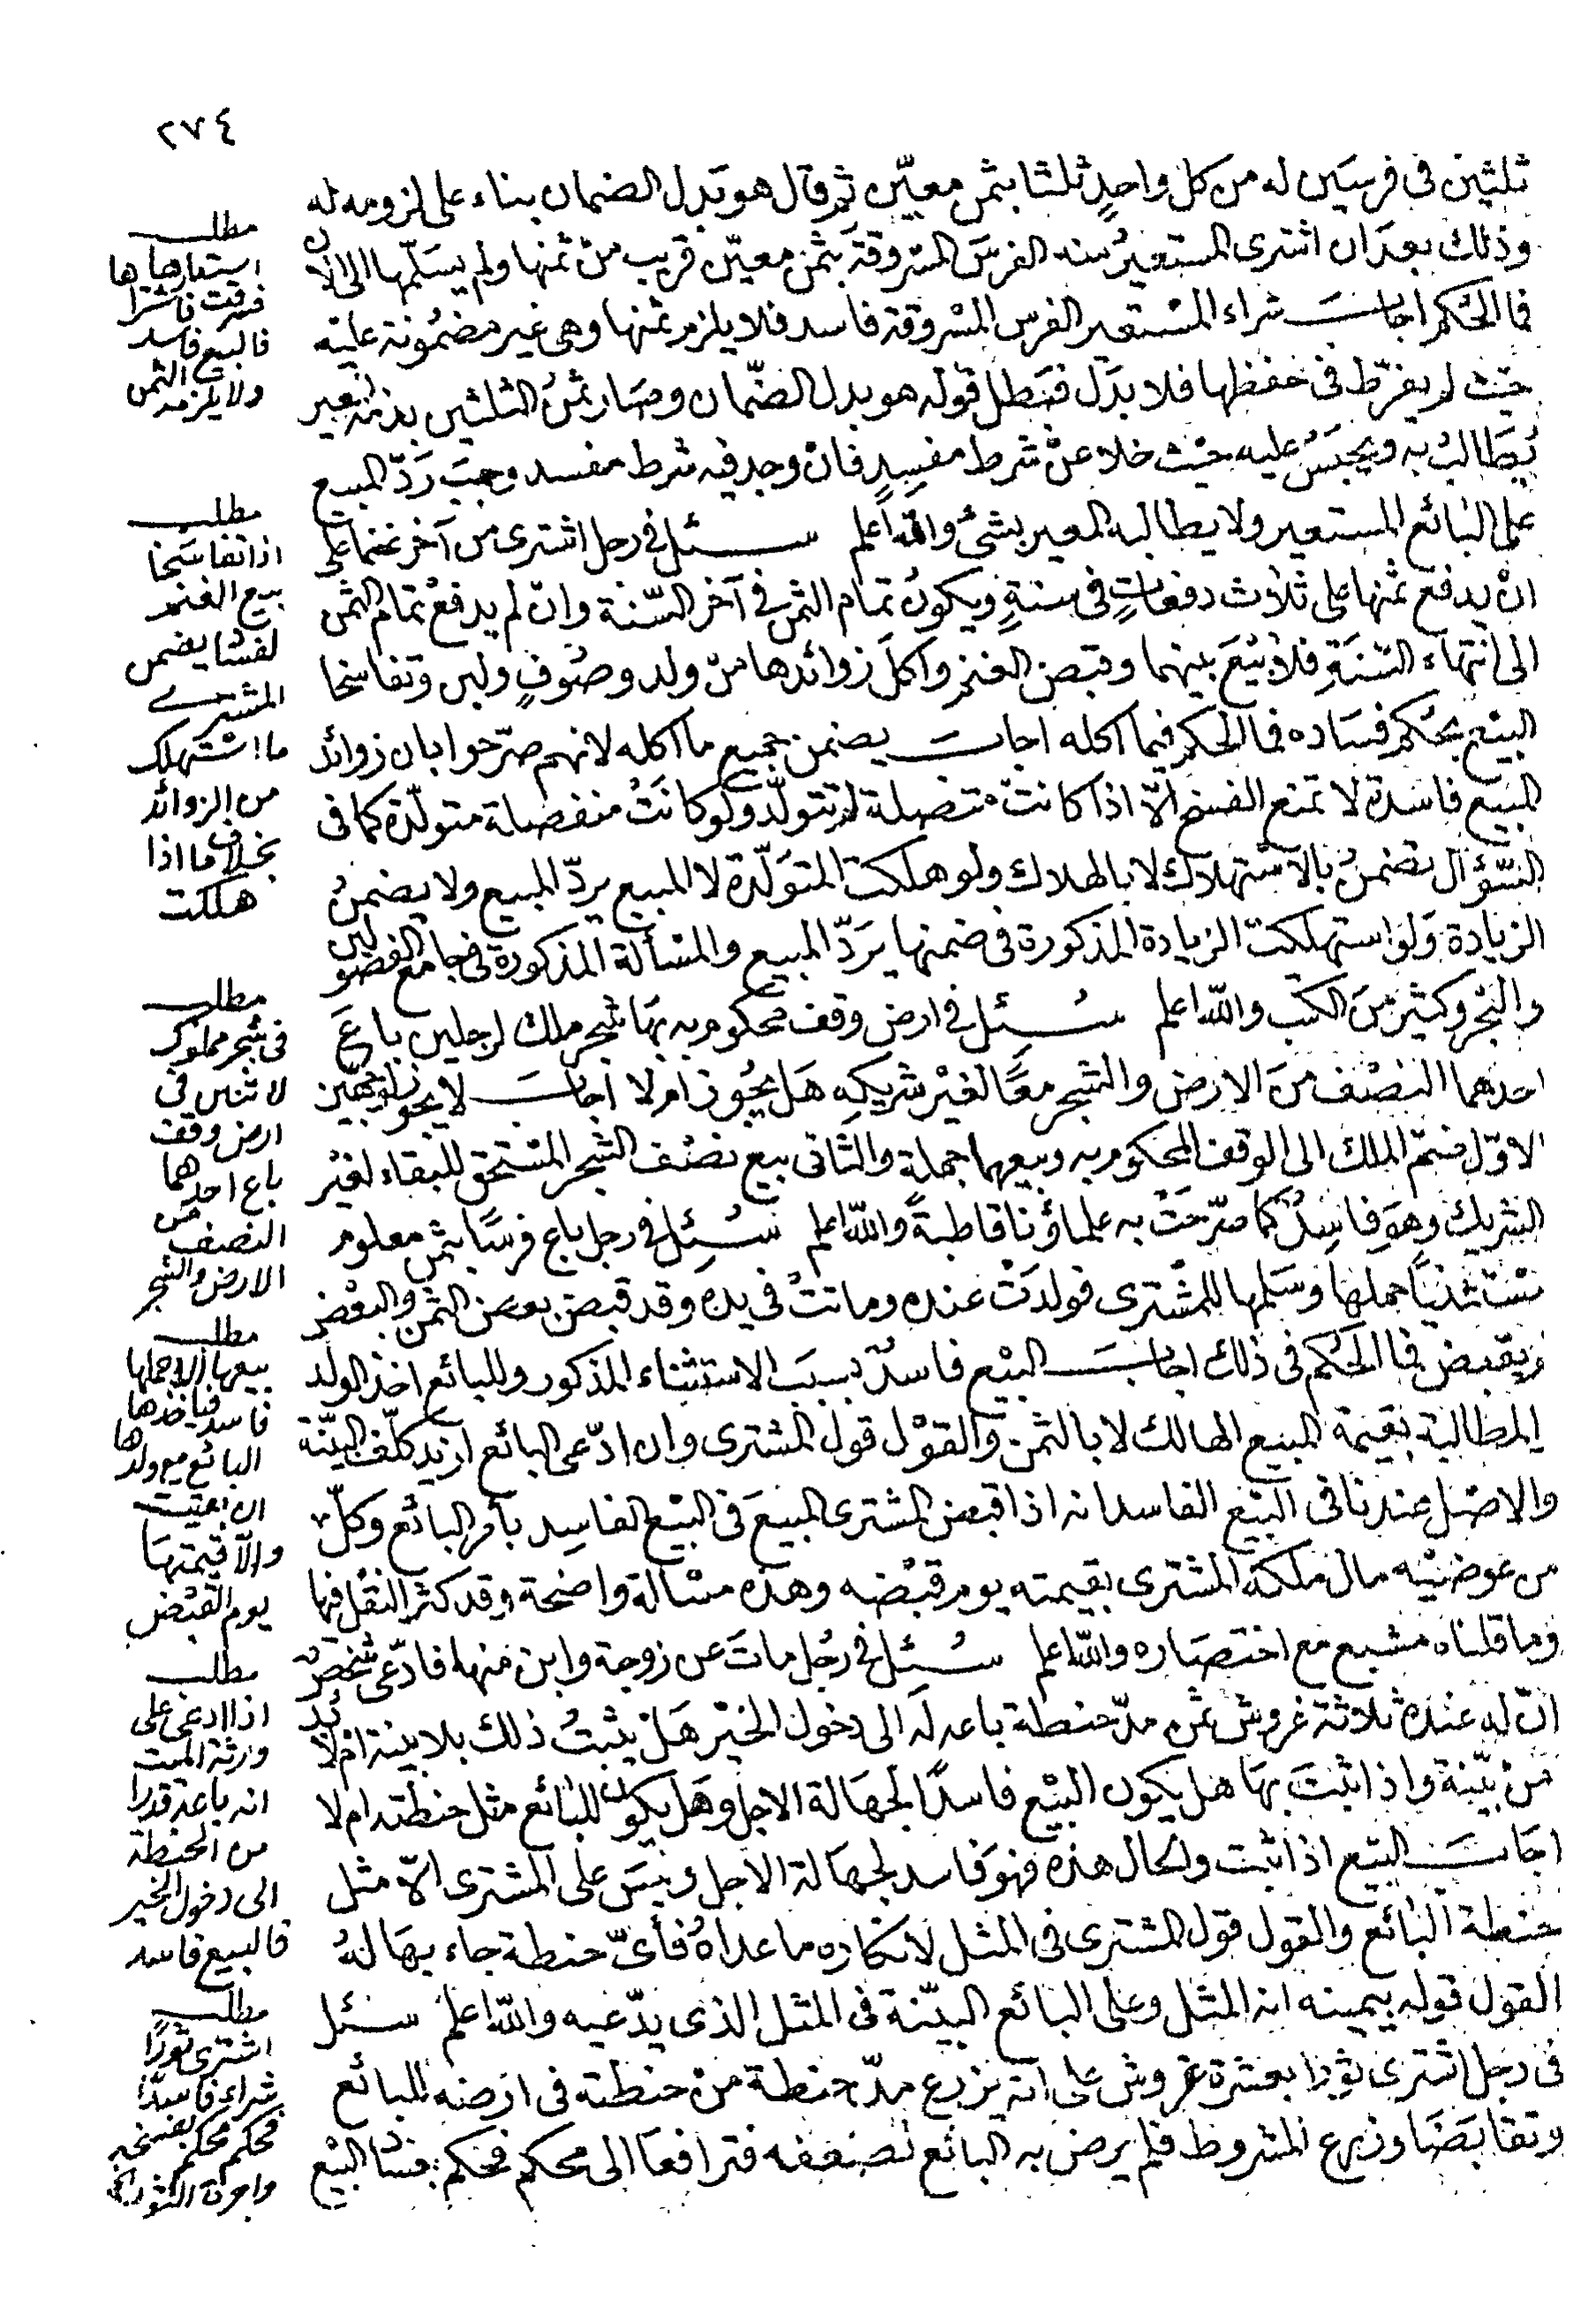 ٢٧٤
ثلثين فى فرسين له من كل واحدٍ ثلثا بثمن معيّن ثم قال هو بَدل الضمان بناء على لزومه له
وذلك بعد ان اشترى المستعيرُ منه الفرسَ المسروقة بثمن معيّن قريب من ثمنها ولم يسَلّمها الى الآن
فما الحُكم اجابَ شراء المسْتعير الفرس المسْروقة فاسد فلا يلزم ثمنها وهى غير مضمُونة عليه
حيث لم يفرّط فى حفظها فلا بدَل فبَطل قوله هو بدل الضّمان وصَار ثمنُ الثلثين بذمة المعير
يُطَالبُ به ويُحبَسُ عليه حيْث خلا عنْ شرط مفسِدٍ فانْ وجد فيه شرط مفسد وجبَ رَدّ المبيع
على البَائع المستعير ولا يطالبه المعير بشئ والله اعلم سئل فى رجل اشترى من آخر غنما على
انْ يدفع ثمنها على ثلاث دفعاتٍ فى سنةٍ ويكونُ تمام الثمن فى آخر السّنة وان لم يدفعْ تمام الثمن
الى انتهاء السّنَةِ فلا بَيْعَ بينهما وقبض الغنم واكلَ زوائدها منْ ولد وصُوفٍ ولبن وتفاسخا
البيْع بحُكم فسَاده فما الحكم فيما اكله اجابَ يضمن جميع ما اكله لانهم صرّحوا بان زوائد
المبيَع فاسدة لا تمنع الفسخ الّا اذا كانتْ متصلة لم تتولّد ولو كانَتْ منفصلة متولّدة كما فى
السّؤال تضمنُ بالاسْتهلاك لا بالهلاك ولو هلكت المتوَلّدة لا المبيع يردّ المبيع ولا يضمنُ
الزيادة وَلو استهلكت الزيادة المذكورة فى ضمنها يَرَدّ المبيع والمسْألة المذكورة فى جامع الفصولين
والبَحْر وكثير منَ الكتب والله اعلم سُئل فى ارض وقف محكوم به بهَا شجر ملك لرجلين باعَ
احدهما النصْف منَ الارض والشجر معًا لغيْر شريكهِ هَل يجُوز ام لا اجابَ لا يجوز لوجهين
الاوّل ضمّ الملك الى الوقف المحكوم به وبيعهما جملة والثانى بيع نصْف الشجر المسْتحق للبقاء لغيْر
الشريك وهوَ فاسِدٌ كما صرّحَتْ به علماؤنا قاطبةً والله اعلم سُئِل فى رجل باع فرسًا بثمن معلوم
مسْتثنيًا حملها وسَلمها للمشترى فولدَتْ عنده وماتتْ فى يده وقد قبض بعض الثمن والبعْض
لم يقبض فما الحُكم فى ذلك اجابَ البيْع فاسدٌ بسبَب الاستثناء المذكور وللبائع اخذ الولد
المطالبة بقيمة المبيع الهالك لا بالثمن والقوْل قول المشترى وان ادّعى البائع ازيد كلّف البيّنة
والاصْل عندنا فى البيْع الفاسد انه اذا قبض المشترى المبيعَ فى البيْع الفاسِد بأمر البائع وكلّ
من عوضيْه مال ملكه المشترى بقيمته يوم قبْضه وهذه مسْألة واضحة وقد كثر النقل فيها
وما قلناه مشبع مع اختصَاره والله اعلم سُئل فى رجُل ماتَ عن زوجة وابن منها فادّعى شخصٌ
انّ له عندهُ ثلاثة غروش ثمن مدّ حنطة باعه له الى دخول الخيْر هَلْ يثبتُ ذلك بلا بينة ام لا بُدّ
منْ بيّنة واذا ثبتَ بهَا هل يكون البيْع فاسدًا لجهَالة الاجل وهَل يكون للبَائع مثل حنطته ام لا
اجَابَ البيْع اذا ثبت والحال هذه فهوَ فاسد لجهَالة الاجل وليسَ على المشترى الّا مثل
حنطة البَائع والقول قول المشترى فى المثل لانكاره ما عداهُ فأىّ حنطة جاء بهَا لهُ
القول قوله بيمينه انه المثل وعلى البائع البيّنة فى المثل الذى يدّعيه والله اعلم سئل
فى رجل اشترى ثورًا بعشرة غروش على انه يزرع مدّ حنطة منْ حنطته فى ارضه للبائع
وتقابضَا وزرع المشروط فلم يرض به البائع لضعفه فترافعَا الى محكم فحكم بفسَاد البيْع
مطلب
استعارها
فسرقت فاشتراها
فالبيع فاسد
ولا يلزمه الثمن
مطلب
اذا تفاسَخا
بيع الغنم
لفسَاد يضمن
المشترى
ما اسْتهلك
من الزوائد
بخلاف ما اذا
هلكت
مطلب
فى شجر مملوك
لاثنين فى
ارض وقف
باع احدهما
النصف من
الارض والشجر
مطلب
بيعها الا حملها
فاسد فياخذها
البائع مع ولدها
ان بقيت
والّا قيمتهَا
يوم القبْض
مطلب
اذا ادعى على
ورثة الميت
انه باعه قدرا
من الحنطة
الى دخول الخير
فالبيع فاسد
مطلب
اشترى ثورًا
شراء فاسدًا
فحكم محكم بفسخه
واجرة الثور